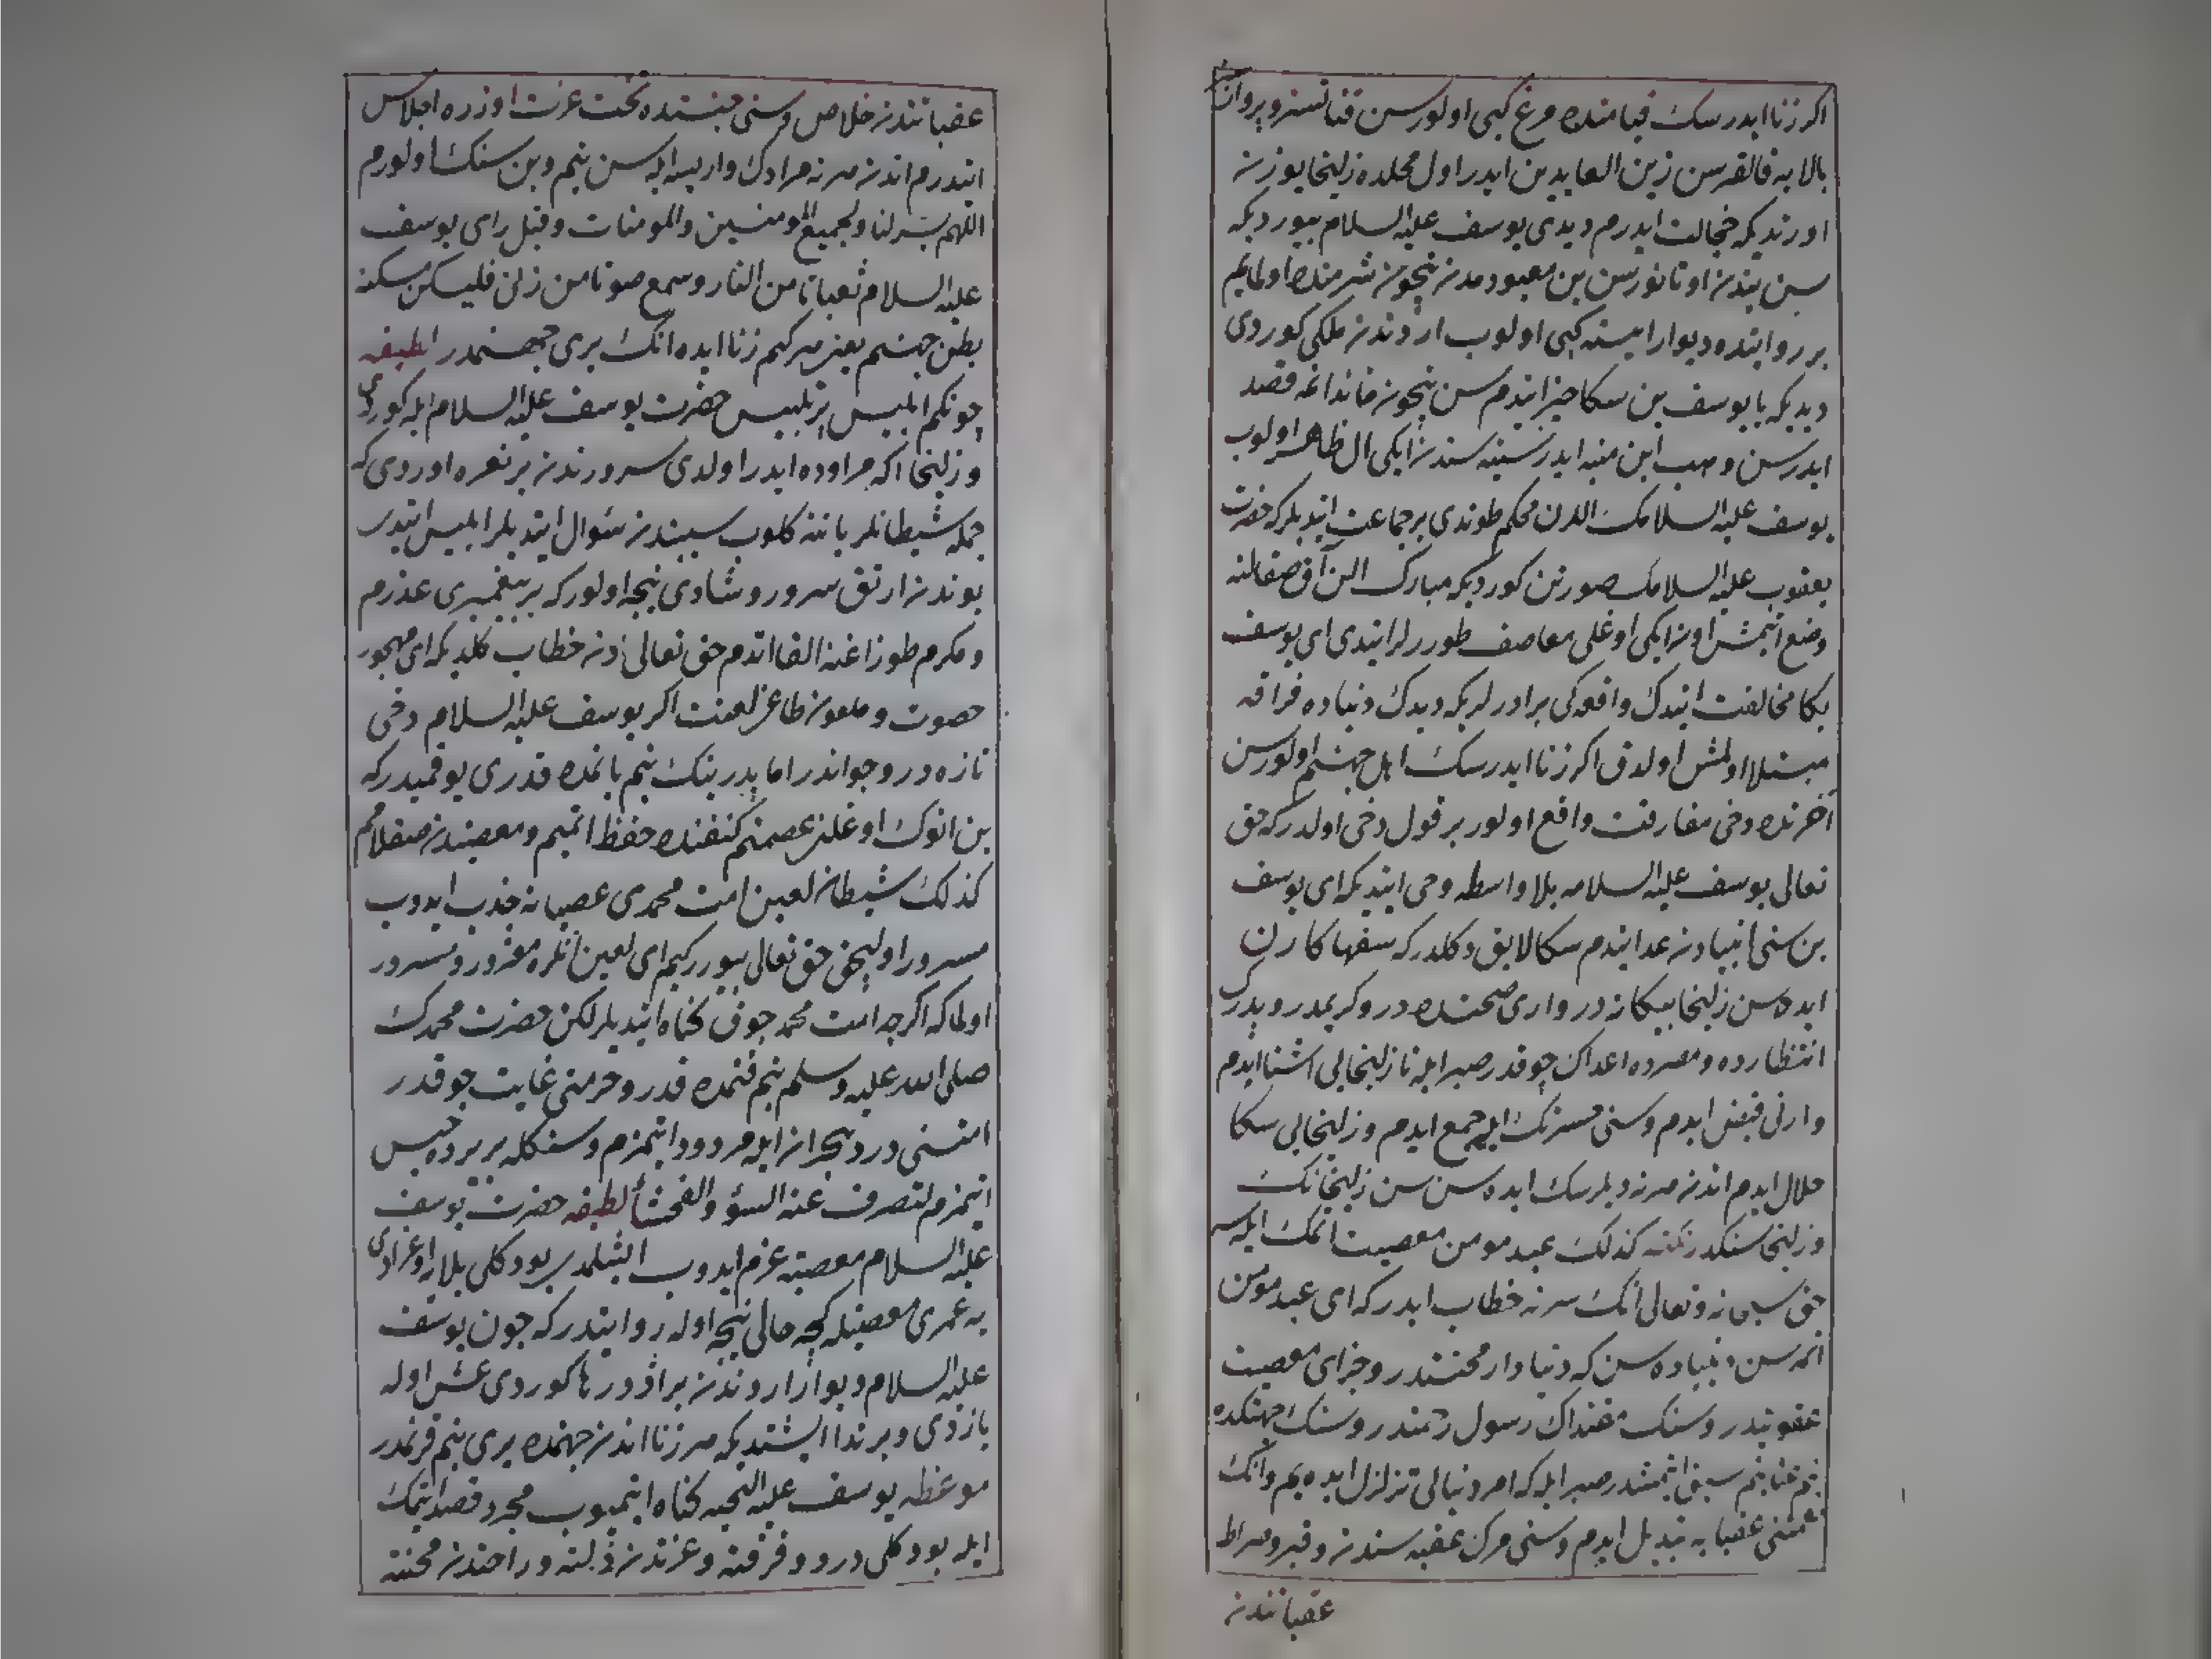 اكر زنا ايدرسك قيامتده مرغ كبى اولورسن قناتسز و پروازدن
بالايه قالقرسن زين العابدين ايدر اول محلده زليخا يوزن
اورتديكه خجالت ايدرم ديدى يوسف عليه السلام بيورديكه
سن بتدن اوتانورسن بن معبودمدن نيچون شرمنده اولمايم
بر روايتده ديوار ايسته كبى اولوب اردندن ملكى كوردى
ديديكه يا يوسف بن سكا خبر ايتدم سن نيچون خاندانمه قصد
ايدرسن وهب ابن منبه ايدر سينه سندن ايكى ال ظاهر اولوب
يوسف عليه السلامك الدن محكم طوتدى بر جماعت ايتديلر كه حضرت
يعقوب عليه السلامك صورتن كورديكه مبارك الن آق صقالنه
وضع ايتمش اون ايكى اوغلى معاصف طوررلر ايتدى اى يوسف
بكا مخالفت ايتدك واقعه كى برادرلريكه ديدك دنياده فراقه
مبتلا اولمش اولدق اكر زنا ايدرسك اهل جهنم اولورسن
آخرتده دخى مفارقت واقع اولور بر قول دخى اولدر كه حق
تعالى يوسف عليه السلامه بلا واسطه وحى ايتديكه اى يوسف
بن سنى انبيادن عد ايتدم سكا لايق دكلدر كه سفها كارن
ايده سن زليخا بيكانه در وارى صحنده در و كريمدر و پدرك
انتظارده و مصرده اعدادك چوقدر صبر ايله تا زليخايى اشنا ايدم
وارنى قبض ايدم و سنى مسرتك ايله جمع ايدم و زليخايى سكا
حلال ايدم اندن هر نه ديلرسك ايده سن سن زليخانك
و زليخا سنكدر نكته كذلك عبد مومن معصيت اتمك ايلر سه
حق سبحانه و تعالى انك سرنه خطاب ايدر كه اى عبد مومن
اتمه سن دنياده سن كه دنيا دار محنتدر و جزاى معصيت
عقوبتدر و سنك مقتداك رسول رحمتدر و سنك جهتكده
بنم عنايتم سبق ايتمشدر صبر ايله كه امر دنيايى تزلزل ايده يم و انك
نعمتنى عقبايه تبديل ايدم و سنى مرك عقبه سندن و قبر و صراط
عقباتندن
عقباتندن خلاص و سنى جنتده تخت عزت اوزره اجلاس
ايتدرم اندن هر نه مرادك وار ايسه ايله سن بنم و بن سنك اولورم
اللهم يسر لنا و لجميع المومنين والمومنات وقيل راى يوسف
عليه السلام ثعبانا من النار وسمع صوتا من زنى فليسكن مسكنه
بطن جهنم يعنى هر كيم زنا ايده انك يرى جهنمدر لطيفه
چونكم ابليس پر تلبيس حضرت يوسف عليه السلام ايله كوردى
و زليخا اكه مراوده ايدر اولدى سرورندن بر نعره اوردى كه
جمله شيطانلر ياننه كلوب سببندن سؤال ايتديلر ابليس ايتدى
بوندن ارتق سرور و شادى نيجه اولور كه بر پيغمبرى عذرم
و مكرم طوزاغنه القا اتدم حق تعالى دن خطاب كلديكه اى مهجور
حصوت و ملعون طاغى لعنت اكر يوسف عليه السلام دخى
تازه در و جواندر اما پدرينك بنم يانمده قدرى يوقميدر كه
بن انوك اوغلن عصمتم كنفنده حفظ اتميم و معصيتدن صقلاميم
كذلك شيطان لعين امت محمدى عصيانه جذب ايدوب
مسرور اوليجق حق تعالى بيورر كيم اى لعين انلره مغرور و مسرور
اولما كه اكرچه امت محمد چوق كناه ايتديلر لكن حضرت محمدك
صلى الله عليه وسلم بنم قتمده قدر و حرمتى غايت چوقدر
امتنى درد هجران ايله مردود ايتمزم و سنكله بر يرده حبس
ايتمزم لنصرف عنه السوء والفحشأ لطيفه حضرت يوسف
عليه السلام معصيته عزم ايدوب ايشلمدى بو دكلى بلايه اوغرادى
يه عمرى معصيتله كچه حالى نيجه اوله روايتدر كه چون يوسف
عليه السلام ديوار اردندن بر اژدرها كوردى عش اوله
يازدى و بر ندا ايشتديكه هر زنا اندن جهنمده يرى بنم قرنمدر
موعظه يوسف عليه التحيه كناه ايتميوب مجرد قصد ايتمك
ايله بو دكلى درد و فرقته و عزتدن ذلته و راحتدن محنته